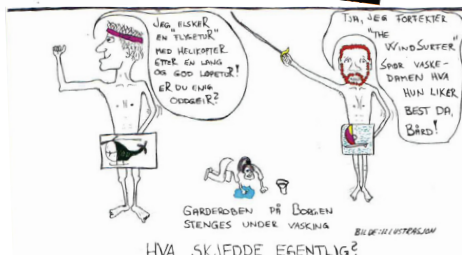 JEG ELSKER
EN "FLYGETUR"
MED HELIKOPTER
ETTER EN LANG
OG GOD LØPETUR!
ER DU ENIG
ODDGEIR?
TJA, JEG FORTEKTER
"THE
WINDSURFER"
SPØR VASKE-
DAMEN HVA
HUN LIKER
BEST DA,
BÅRD!
GARDEROBEN PÅ BORGEN
STENGES UNDER VASKING
BILDE: ILLUSTRASJON
HVA SKJEDDE EGENTLIG?